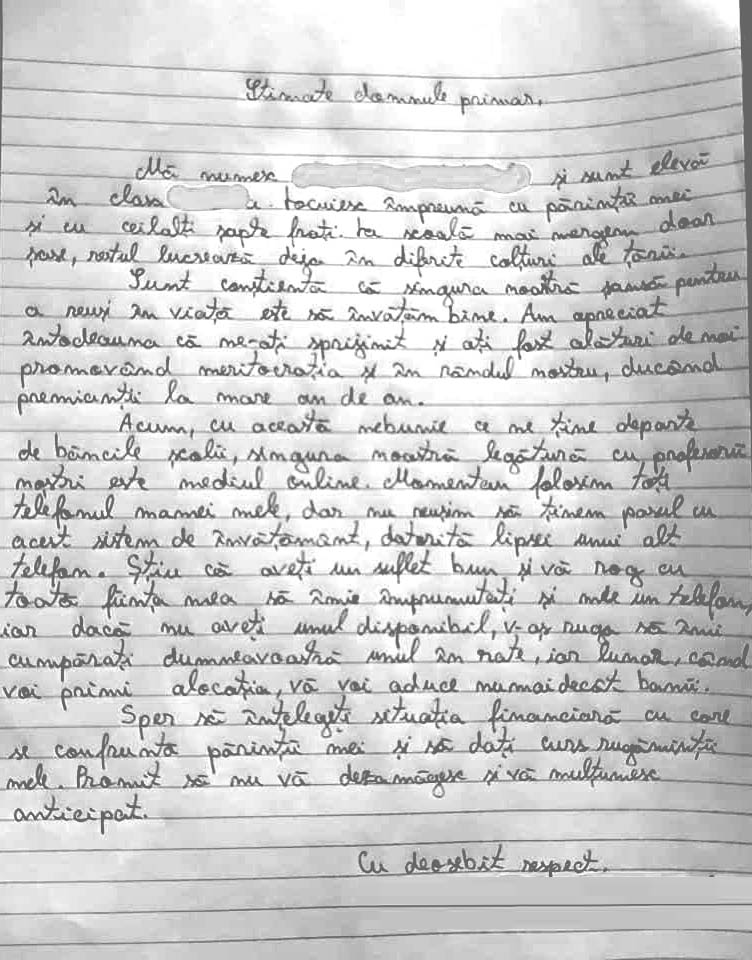 Stimate domnule primar,
Mă numesc și sunt elevă
în clasa a. Locuiesc împreună cu părinții mei
și cu ceilalți șapte frați. La școală mai mergem doar
șase, restul lucrează deja în diferite colțuri ale țării.
Sunt conștientă că singura noastră șansă pentru
a reuși în viață este să învățăm bine. Am apreciat
întodeauna că ne-ați sprijinit și ați fost alături de noi
promovând meritocrația și în rândul nostru, ducând
premianții la mare an de an.
Acum, cu această nebunie ce ne ține departe
de băncile școlii, singura noastră legătură cu profesorii
noștri este mediul online. Momentan folosim toți
telefonul mamei mele, dar nu reușim să ținem pasul cu
acest sistem de învățământ, datorită lipsei unui alt
telefon. Știu că aveți un suflet bun și vă rog cu
toată ființa mea să îmie împrumutați și mie un telefon
iar dacă nu aveți unul disponibil, v-aș ruga să îmi
cumpărați dumneavoastră unul în rate, iar lunar, când
voi primi alocația, vă voi aduce numaidecât banii.
Sper să înțelegeți situația financiară cu care
se confruntă părinții mei și să dați curs rugăminții
mele. Promit să nu vă dezamăgesc și vă mulțumesc
anticipat.
Cu deosebit respect.